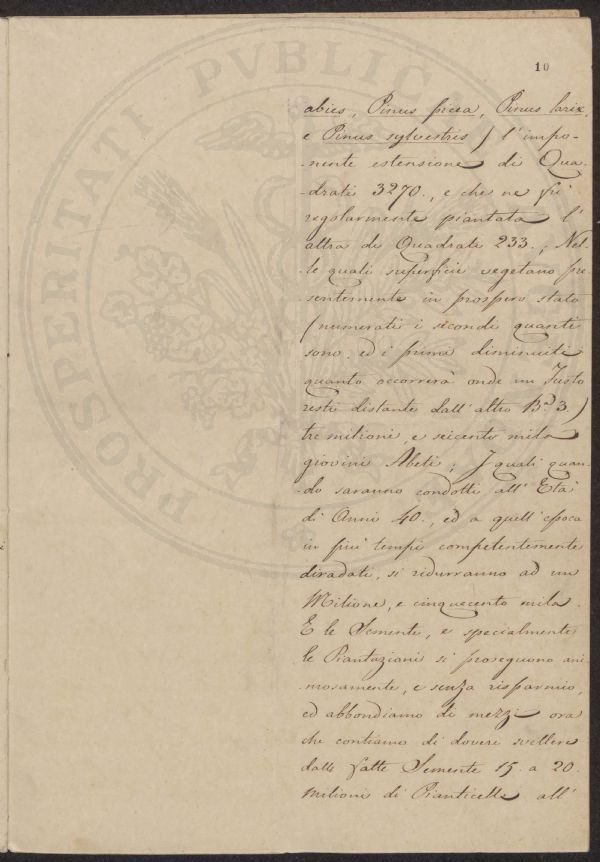 10
abies, Pinus picea, Pinus larix,
e Pinus sylvestris) l'impo-
-nente estensione di Qua-
-drati 3270., e che ne fù
regolarmente piantata l'
altra di Quadrati 233.; Nel-
-le quali superficie vegetano pre-
-sentemente in prospero stato
(numerati i secondi quanti
sono; ed i primi diminuiti
quanto occorrerà onde un Fusto
resti distante dall'altro Ba. 3.)
tre milioni, e seicento mila
giovini Abeti; I quali quan-
-do saranno condotti all'Età
di Anni 40., ed a quell'epoca
in più tempi competentemente
diradati, si ridurranno ad un
Milione, e cinquecento mila.
E le Semente, e specialmente
le Piantazioni si proseguono ani-
-mosamente, e senza risparmio,
ed abbondiamo di mezzi ora
che contiamo di dovere svellere
dalle fatte Semente 15. a 20.
Milioni di Pianticelle all'
PROSPERITATI PVBLICAE